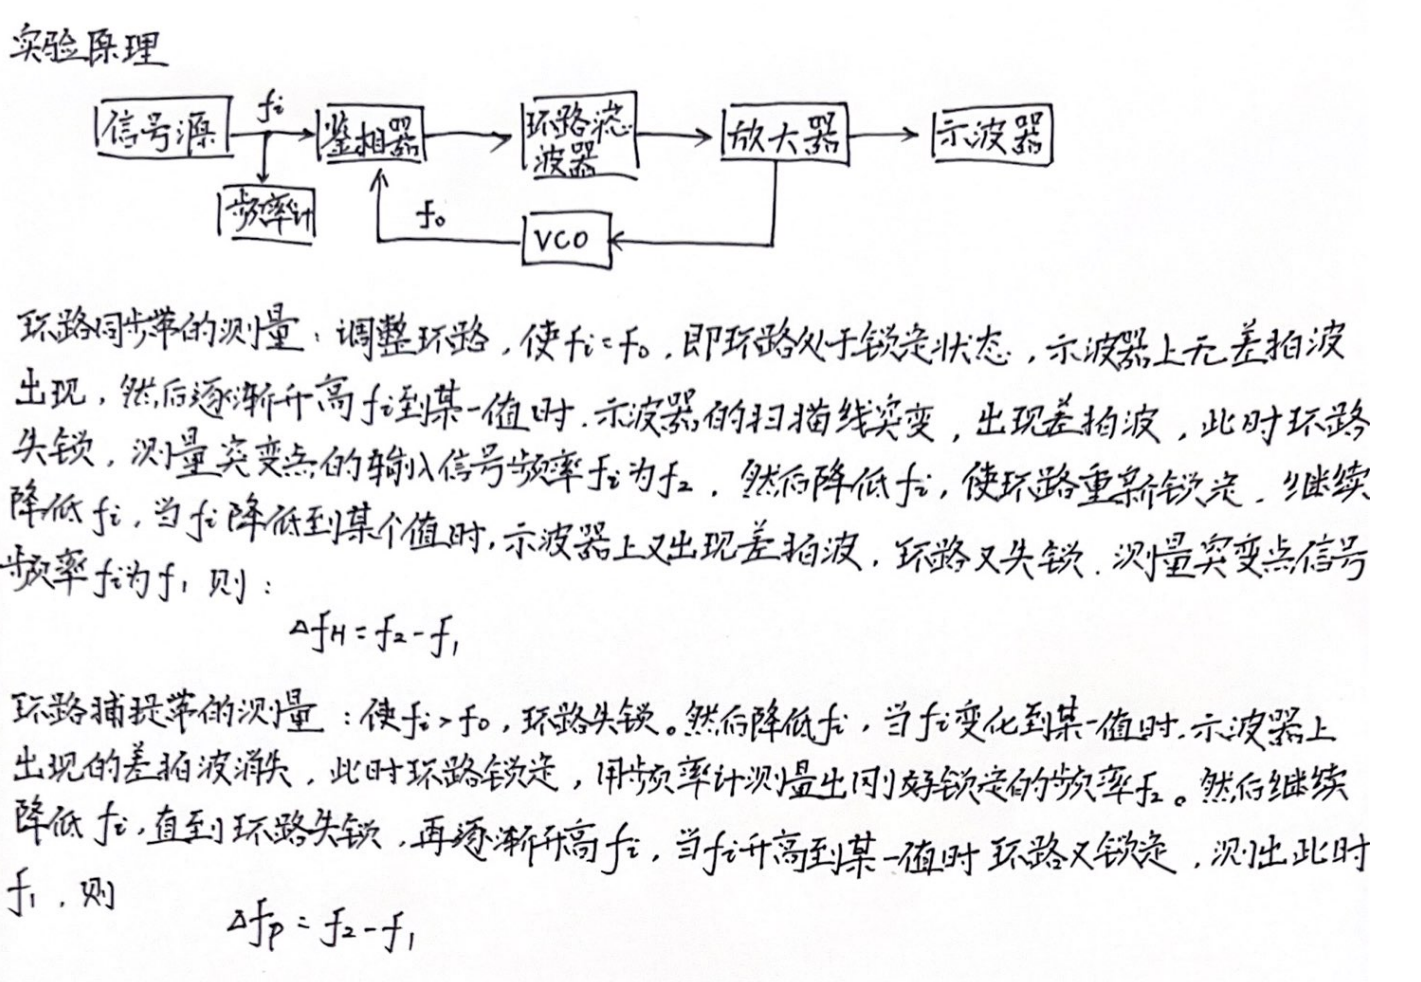 实验原理
信号源
fi
鉴相器
环路滤
波器
放大器
示波器
频率计
fo
VCO
环路同步带的测量：调整环路，使fi=fo，即环路处于锁定状态，示波器上无差拍波
出现，然后逐渐升高fi到某一值时，示波器的扫描线突变，出现差拍波，此时环路
失锁，测量突变点的输入信号频率fi为f2，然后降低fi，使环路重新锁定，继续
降低fi，当fi降低到某个值时，示波器上又出现差拍波，环路又失锁，测量突变点信号
频率fi为f1 则：
△fH=f2-f1
环路捕捉带的测量：使fi>fo，环路失锁。然后降低fi，当fi变化到某一值时，示波器上
出现的差拍波消失，此时环路锁定，用频率计测量出刚好锁定的频率f2。然后继续
降低fi，直到环路失锁，再逐渐升高fi，当fi升高到某一值时环路又锁定，测出此时
f1，则
△fp=f2-f1